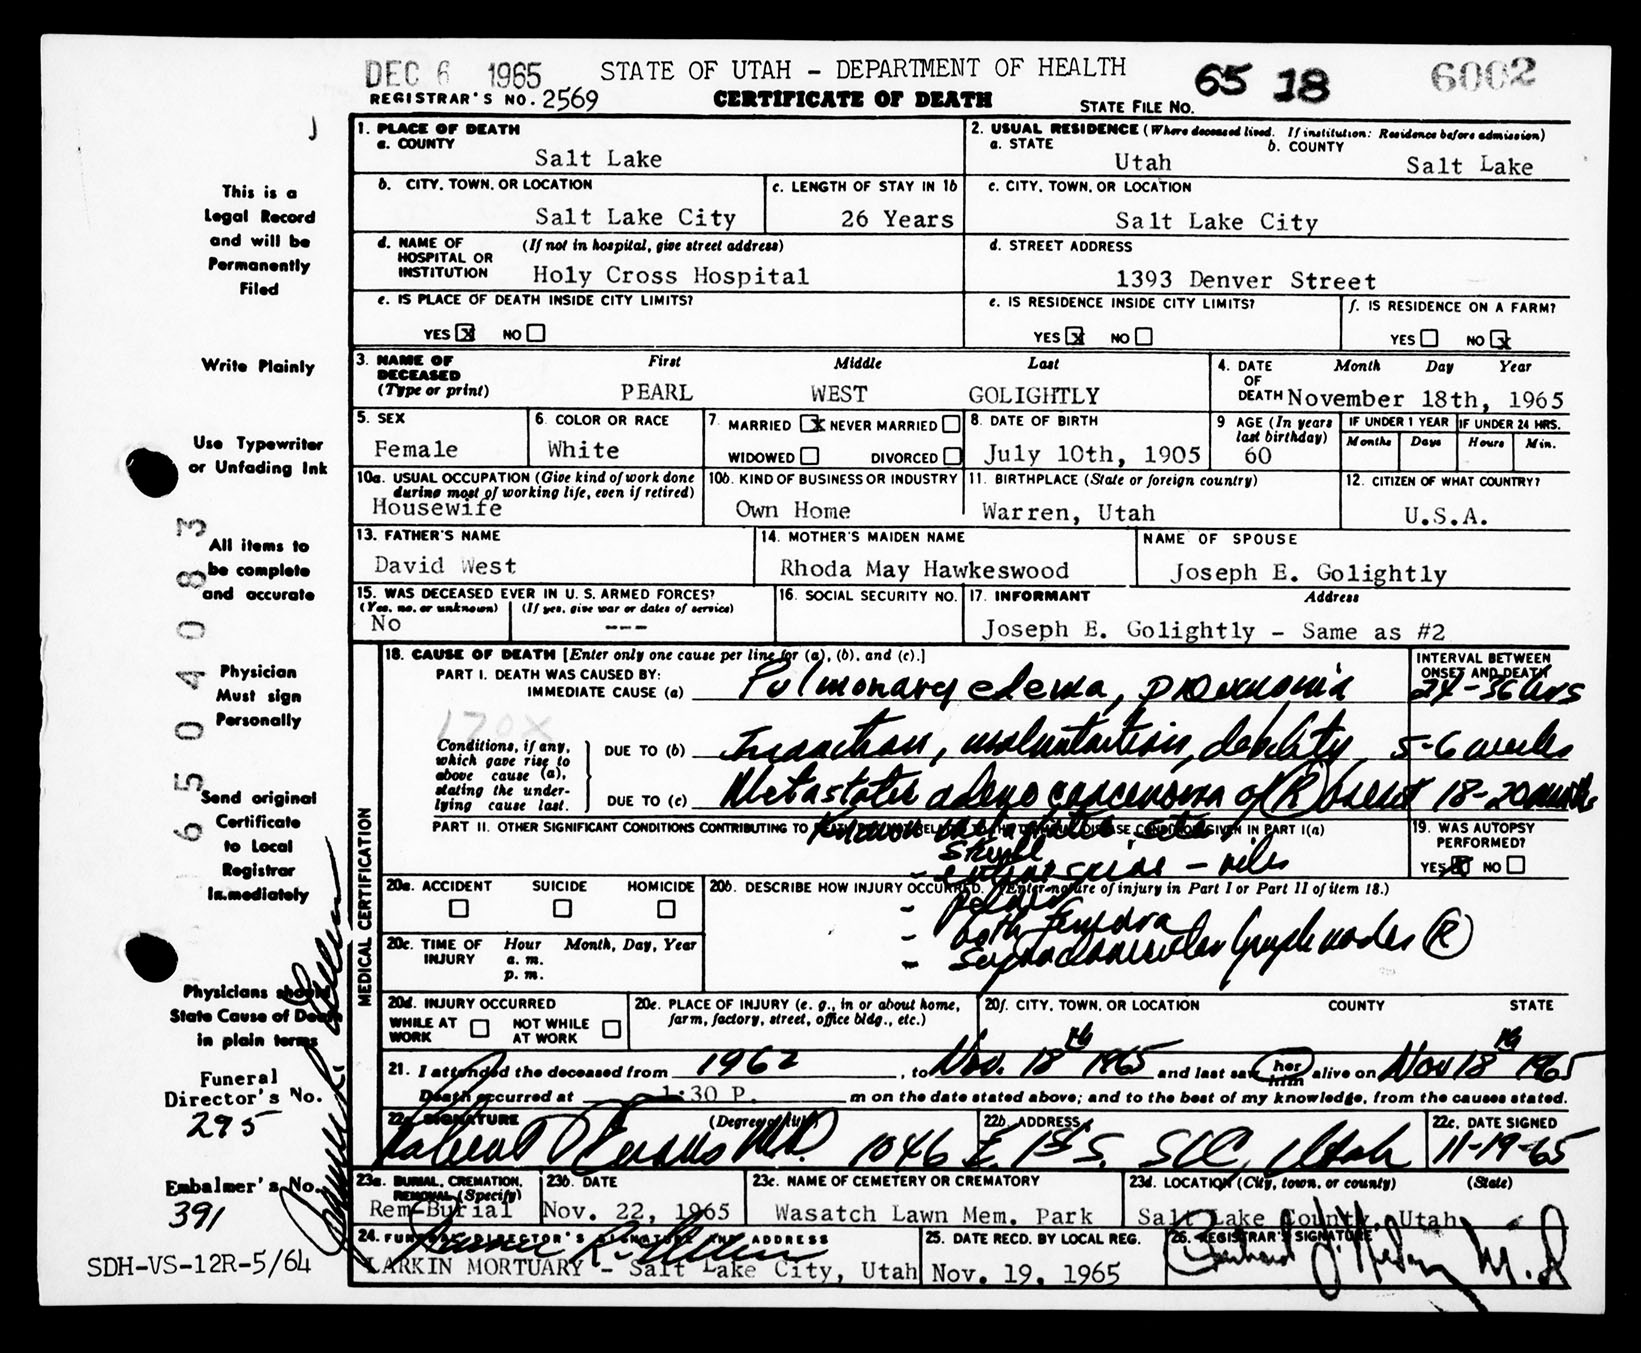 DEC 6 1965 STATE OF UTAH – DEPARTMENT OF HEALTH 65 18 6002
REGISTRAR'S NO. 2569 CERTIFICATE OF DEATH STATE FILE NO.
1. PLACE OF DEATH
a. COUNTY
Salt Lake
2. USUAL RESIDENCE (Where deceased lived. If institution: Residence before admission)
a. STATE b. COUNTY
Utah Salt Lake
b. CITY, TOWN, OR LOCATION
Salt Lake City
c. LENGTH OF STAY IN 1b
26 Years
c. CITY, TOWN, OR LOCATION
Salt Lake City
d. NAME OF HOSPITAL OR INSTITUTION (If not in hospital, give street address)
Holy Cross Hospital
d. STREET ADDRESS
1393 Denver Street
e. IS PLACE OF DEATH INSIDE CITY LIMITS?
YES X NO
e. IS RESIDENCE INSIDE CITY LIMITS?
YES X NO
f. IS RESIDENCE ON A FARM?
YES NO X
3. NAME OF DECEASED (Type or print)
First Middle Last
PEARL WEST GOLIGHTLY
4. DATE OF DEATH Month Day Year
November 18th, 1965
5. SEX
Female
6. COLOR OR RACE
White
7. MARRIED X NEVER MARRIED
WIDOWED DIVORCED
8. DATE OF BIRTH
July 10th, 1905
9 AGE (In years last birthday)
60
IF UNDER 1 YEAR IF UNDER 24 HRS.
Months Days Hours Min.
10a. USUAL OCCUPATION (Give kind of work done during most of working life, even if retired)
Housewife
10b. KIND OF BUSINESS OR INDUSTRY
Own Home
11. BIRTHPLACE (State or foreign country)
Warren, Utah
12. CITIZEN OF WHAT COUNTRY?
U.S.A.
13. FATHER'S NAME
David West
14. MOTHER'S MAIDEN NAME
Rhoda May Hawkeswood
NAME OF SPOUSE
Joseph E. Golightly
15. WAS DECEASED EVER IN U. S. ARMED FORCES?
(Yes, no, or unknown) (If yes, give war or dates of service)
No ---
16. SOCIAL SECURITY NO.
17. INFORMANT Address
Joseph E. Golightly - Same as #2
18. CAUSE OF DEATH [Enter only one cause per line for (a), (b), and (c).]
INTERVAL BETWEEN ONSET AND DEATH
PART I. DEATH WAS CAUSED BY:
IMMEDIATE CAUSE (a) Pulmonary edema, pneumonia 24-36 hrs
170X
Conditions, if any, which gave rise to above cause (a), stating the underlying cause last.
DUE TO (b) Inanition, malnutrition, debility 5-6 weeks
DUE TO (c) Metastatic adeno carcinoma of (R) breast 18-20 months
PART II. OTHER SIGNIFICANT CONDITIONS CONTRIBUTING TO DISEASE CONDITION GIVEN IN PART I(a)
Known metastatic sites
skull
- entire spine - ribs
- pelvis
- both femora
- supraclavicular lymph nodes (R)
19. WAS AUTOPSY PERFORMED?
YES NO
20a. ACCIDENT SUICIDE HOMICIDE
20b. DESCRIBE HOW INJURY OCCURRED. (Enter nature of injury in Part I or Part II of item 18.)
20c. TIME OF INJURY Hour Month, Day, Year
a. m.
p. m.
20d. INJURY OCCURRED
WHILE AT WORK NOT WHILE AT WORK
20e. PLACE OF INJURY (e. g., in or about home, farm, factory, street, office bldg., etc.)
20f. CITY, TOWN, OR LOCATION COUNTY STATE
21. I attended the deceased from 1962, to Nov. 18th 1965 and last saw her him alive on Nov 18th 1965
Death occurred at 1:30 P. m on the date stated above; and to the best of my knowledge, from the causes stated.
22a. SIGNATURE (Degree or title)
Evans M.D.
22b. ADDRESS
1046 E. 1st S. SLC, Utah
22c. DATE SIGNED
11-19-65
23a. BURIAL, CREMATION, REMOVAL (Specify)
Rem-Burial
23b. DATE
Nov. 22, 1965
23c. NAME OF CEMETERY OR CREMATORY
Wasatch Lawn Mem. Park
23d. LOCATION (City, town, or county) (State)
Salt Lake County, Utah
24. FUNERAL DIRECTOR'S SIGNATURE AND ADDRESS
LARKIN MORTUARY - Salt Lake City, Utah
25. DATE RECD. BY LOCAL REG.
Nov. 19, 1965
26. REGISTRAR'S SIGNATURE
MEDICAL CERTIFICATION
This is a
Legal Record
and will be
Permanently
Filed
Write Plainly
Use Typewriter
or Unfading Ink
All items to
be complete
and accurate
Physician
Must sign
Personally
Send original
Certificate
to Local
Registrar
immediately
Physicians should
State Cause of Death
in plain terms
Funeral
Director's No.
295
Embalmer's No.
391
SDH-VS-12R-5/64
65 04083